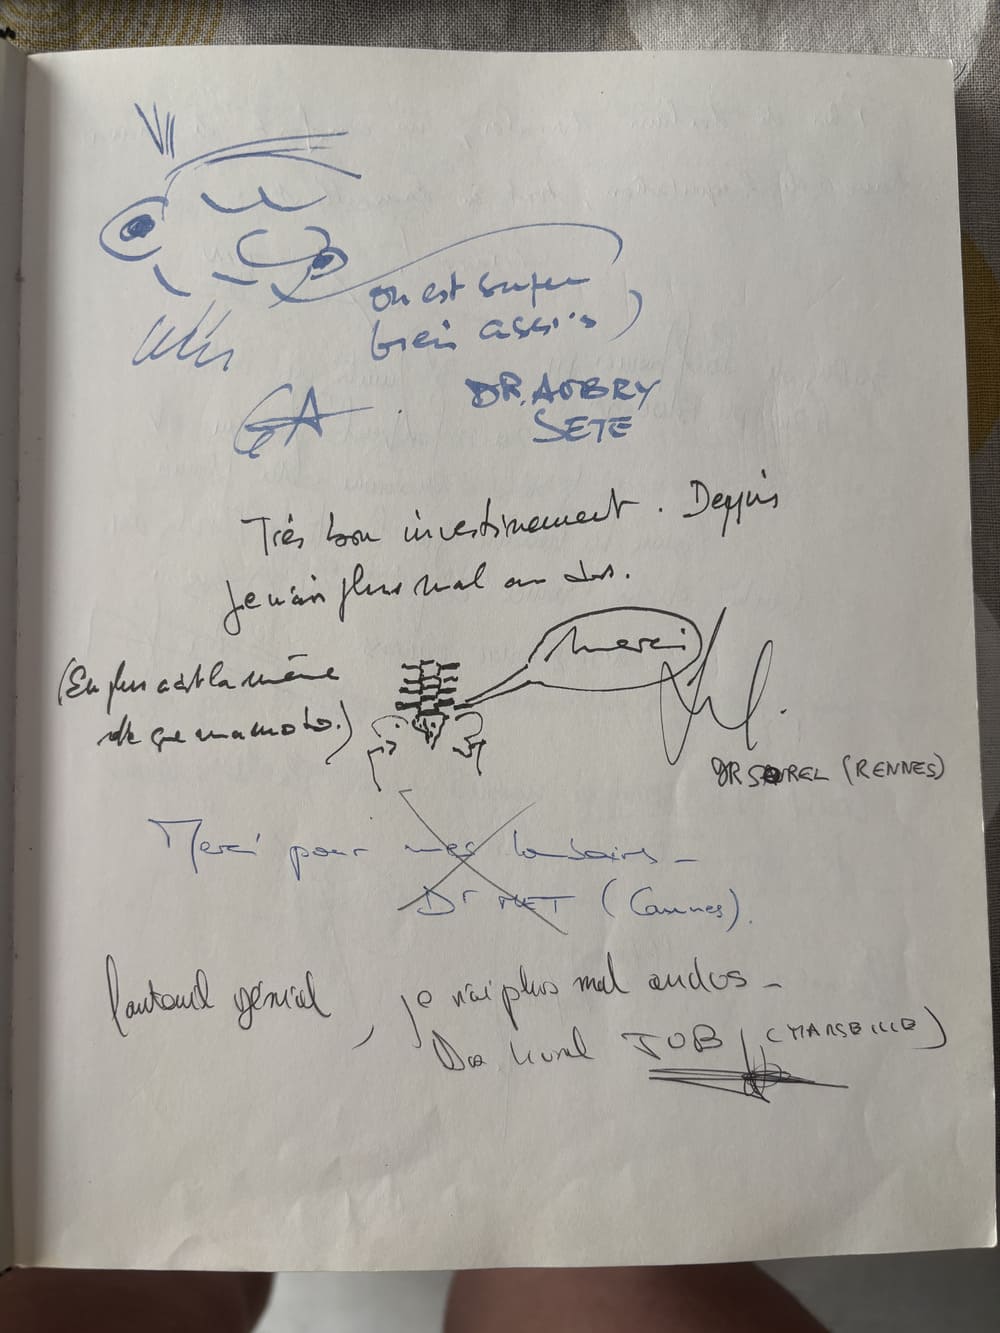 on est super
bien assis
DR. AUBRY
SETE
Très bon investissement. Depuis
je n'ai plus mal au dos.
Merci
(En plus c'est la même
que ma moto.)
DR SOREL (RENNES)
Merci pour mes lombaires -
Dr MET (Cannes).
fauteuil génial, je n'ai plus mal au dos -
JOB (MARSEILLE)